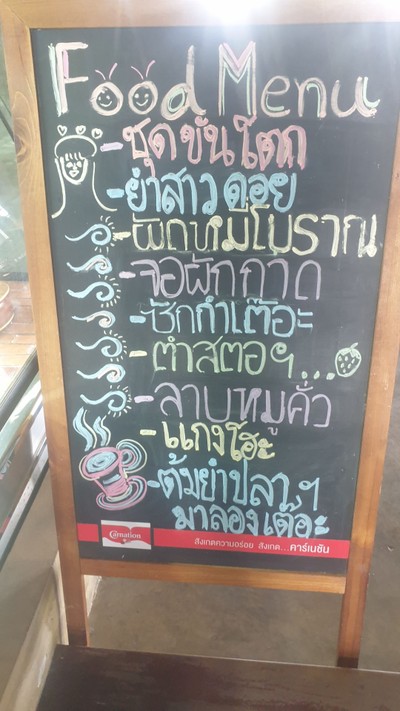 Food Menu
-ชุดขันโตก
-ยำสาวดอย
-ผัดหมี่โบราณ
-จอผักกาด
-ซิกกำเต๊อะ
-ตำสตอฯ...
-ลาบหมูคั่ว
-แกงโฮะ
-ต้มยำปลาฯ
มาลองเต๊อะ
Carnation
สังเกตความอร่อย สังเกต...คาร์เนชัน